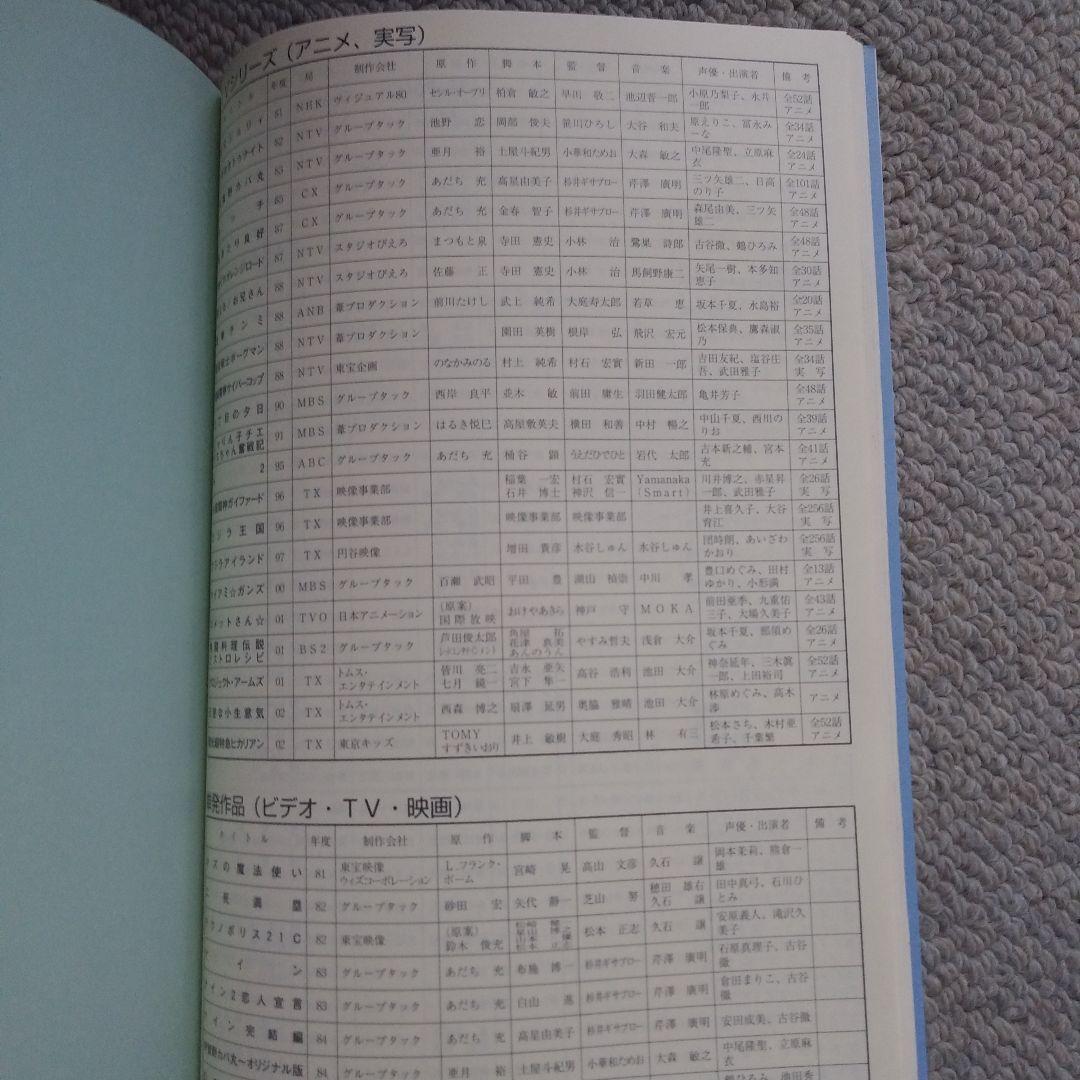 シリーズ（アニメ、実写）
ト ル 年度 局 制作会社 原 作 脚 本 監 督 音 楽 声優・出演者 備 考
81 NHK ヴィジュアル80 セシル・オーブリ 柏倉 敏之 早川 敬二 池辺晋一郎 小原乃梨子、永井一郎 全52話アニメ
82 NTV グループタック 池野 恋 岡部 俊夫 笹川ひろし 大谷 和夫 原えりこ、冨永みーな 全34話アニメ
野カバ丸 83 NTV グループタック 亜月 裕 土屋斗紀男 小華和ためお 大森 敏之 中尾隆聖、立原麻衣 全24話アニメ
チ 85 CX グループタック あだち 充 高星由美子 杉井ギサブロー 芹澤 廣明 三ツ矢雄二、日高のり子 全101話アニメ
とり良好 87 CX グループタック あだち 充 金春 智子 杉井ギサブロー 芹澤 廣明 森尾由美、三ツ矢雄二 全48話アニメ
オレンジロード 87 NTV スタジオぴえろ まつもと泉 寺田 憲史 小林 治 鷺巣 詩郎 古谷徹、鶴ひろみ 全48話アニメ
お兄さん 88 NTV スタジオぴえろ 佐藤 正 寺田 憲史 小林 治 馬飼野康二 矢尾一樹、本多知恵子 全30話アニメ
キンミ 88 ANB 葦プロダクション 前川たけし 武上 純希 大庭寿太郎 若草 恵 坂本千夏、水島裕 全20話アニメ
戦士ボーグマン 88 NTV 葦プロダクション 園田 英樹 根岸 弘 飛沢 宏元 松本保典、鷹森淑乃 全35話アニメ
サイバーコップ 88 NTV 東宝企画 のなかみのる 村上 純希 村石 宏實 新田 一郎 吉田友紀、塩谷庄吾、武田雅子 全34話実 写
目の夕日 90 MBS グループタック 西岸 良平 並木 敏 前田 庸生 羽田健太郎 亀井芳子 全48話アニメ
りん子チエちゃん奮戦記 91 MBS 葦プロダクション はるき悦巳 高屋敷英夫 横田 和善 中村 暢之 中山千夏、西川のりお 全39話アニメ
2 95 ABC グループタック あだち 充 桶谷 顕 うえだひでひと 岩代 太郎 古本新之輔、宮本充 全41話アニメ
神ガイファード 96 TX 映像事業部 稲葉 一宏 石井 博士 村石 宏實 神沢 信一 Yamanaka（Smart） 川井博之、赤星昇一郎、武田雅子 全26話実 写
ジラ王国 96 TX 映像事業部 映像事業部 映像事業部 井上喜久子、大谷育江 全256話実 写
ラアイランド 97 TX 円谷映像 増田 貴彦 水谷しゅん 水谷しゅん 団時朗、あいざわかおり 全256話実 写
イアミ☆ガンズ 00 MBS グループタック 百瀬 武昭 平田 豊 湖山 禎崇 中川 孝 豊口めぐみ、田村ゆかり、小形満 全13話アニメ
メットさん☆ 01 TVO 日本アニメーション （原案）国際放映 おけやあきら 神戸 守 MOKA 前田亜季、九重佑三子、大場久美子 全43話アニメ
料理伝説ストロレシピ 01 BS2 グループタック 芦田俊太郎 あんのうん やすみ哲夫 浅倉 大介 坂本千夏、那須めぐみ 全26話アニメ
ロジェクト・アームズ 01 TX トムス・エンタテインメント 皆川 亮二 七月 鏡一 吉永 亜矢 宮下 隼一 高谷 浩利 池田 大介 神奈延年、三木眞一郎、上田祐司 全52話アニメ
な小生意気 02 TX トムス・エンタテインメント 西森 博之 扇澤 延男 奥脇 雅晴 池田 大介 林原めぐみ、高木渉 アニメ
超特急ヒカリアン 02 TX 東京キッズ TOMY すずきいおり 井上 敏樹 大庭 秀昭 林 有三 松本さち、木村亜希子、千葉繁 全52話アニメ
単発作品（ビデオ・TV・映画）
タイトル 年度 制作会社 原 作 脚 本 監 督 音 楽 声優・出演者 備 考
ズの魔法使い 81 東宝映像 ウィズコーポレーション L.フランク・ボーム 宮崎 晃 高山 文彦 久石 譲 岡本茉莉、熊倉一雄
長 満 塁 82 グループタック 砂田 宏 矢代 静一 芝山 努 穂田 雄右 久石 譲 田中真弓、石川ひとみ
クノポリス21C 82 東宝映像 （原案）鈴木 俊充 松本 正志 久石 譲 安原義人、滝沢久美子
イン 83 グループタック あだち 充 布施 博一 杉井ギサブロー 芹澤 廣明 石原真理子、古谷徹
イン2恋人宣言 83 グループタック あだち 充 白山 進 杉井ギサブロー 芹澤 廣明 倉田まりこ、古谷徹
イン完結編 84 グループタック あだち 充 高星由美子 杉井ギサブロー 芹澤 廣明 安田成美、古谷徹
野カバ丸～オリジナル版 84 グループタック 亜月 裕 土屋斗紀男 小華和ためお 大森 敏之 中尾隆聖、立原麻衣
鶴ひろみ、池田秀